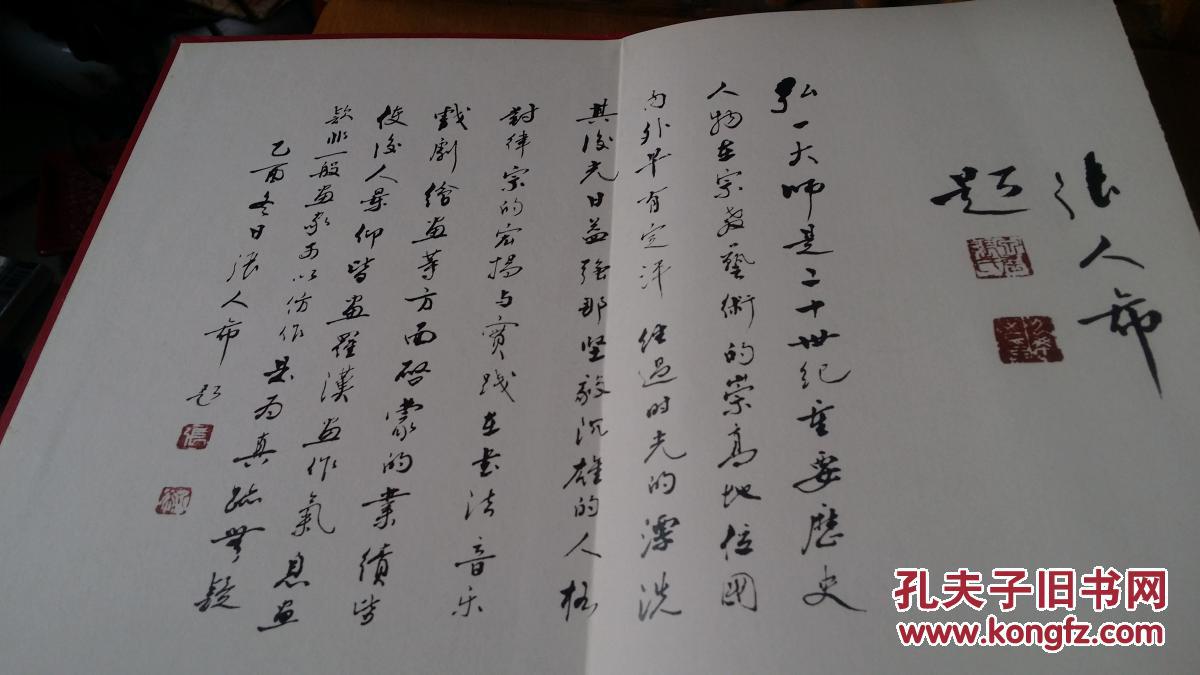 张人希
题
弘一大师是二十世纪重要歷史
人物在宗教藝術的崇高地位國
内外早有定评经过时光的漂洗
其後光日益强那坚毅沉雄的人格
對律宗的宏揚与實践在书法音乐
戲劇繪画等方面啓蒙的業績皆
使後人景仰皆画羅漢画作氣息画
款非一般画家可以仿作是为真跡無疑
乙酉冬日张人希题
孔夫子旧书网
www.kongfz.com